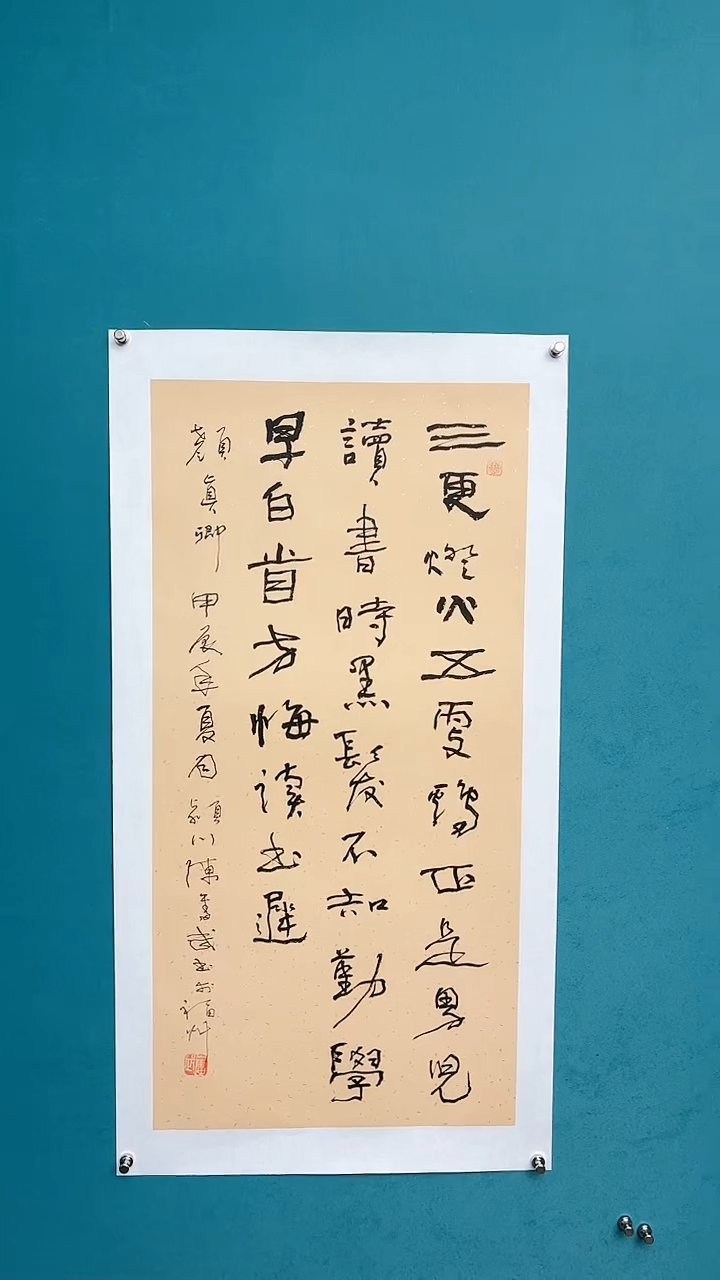 三更燈火五更鷄正是男兒
讀書時黑髮不知勤學
早白首方悔讀書遲
顏真卿 甲辰年夏月 潁川陳武書於福州